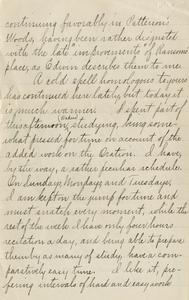 continuing favorably in Patterson's
Woods, having been rather disgusted
with the late "improvements" of Ransom's
place, as Edwin describes them to me.
A cold spell homologous to yours
has continued here lately, but today it
is much warmer. I spent part of
this afternoon studying, being some-
what pressed for time on account of the
added work on the Oration. I have,
by the way, a rather peculiar schedule.
On Sundays, Mondays and Tuesdays,
I am kept on the jump for time and
must snatch every moment, while the
rest of the week I have only four hours
recitation a day, and being able to prepare
them by as many of study, have a com-
paratively easy time. I like it, pre-
fering intervals of hard and easy work